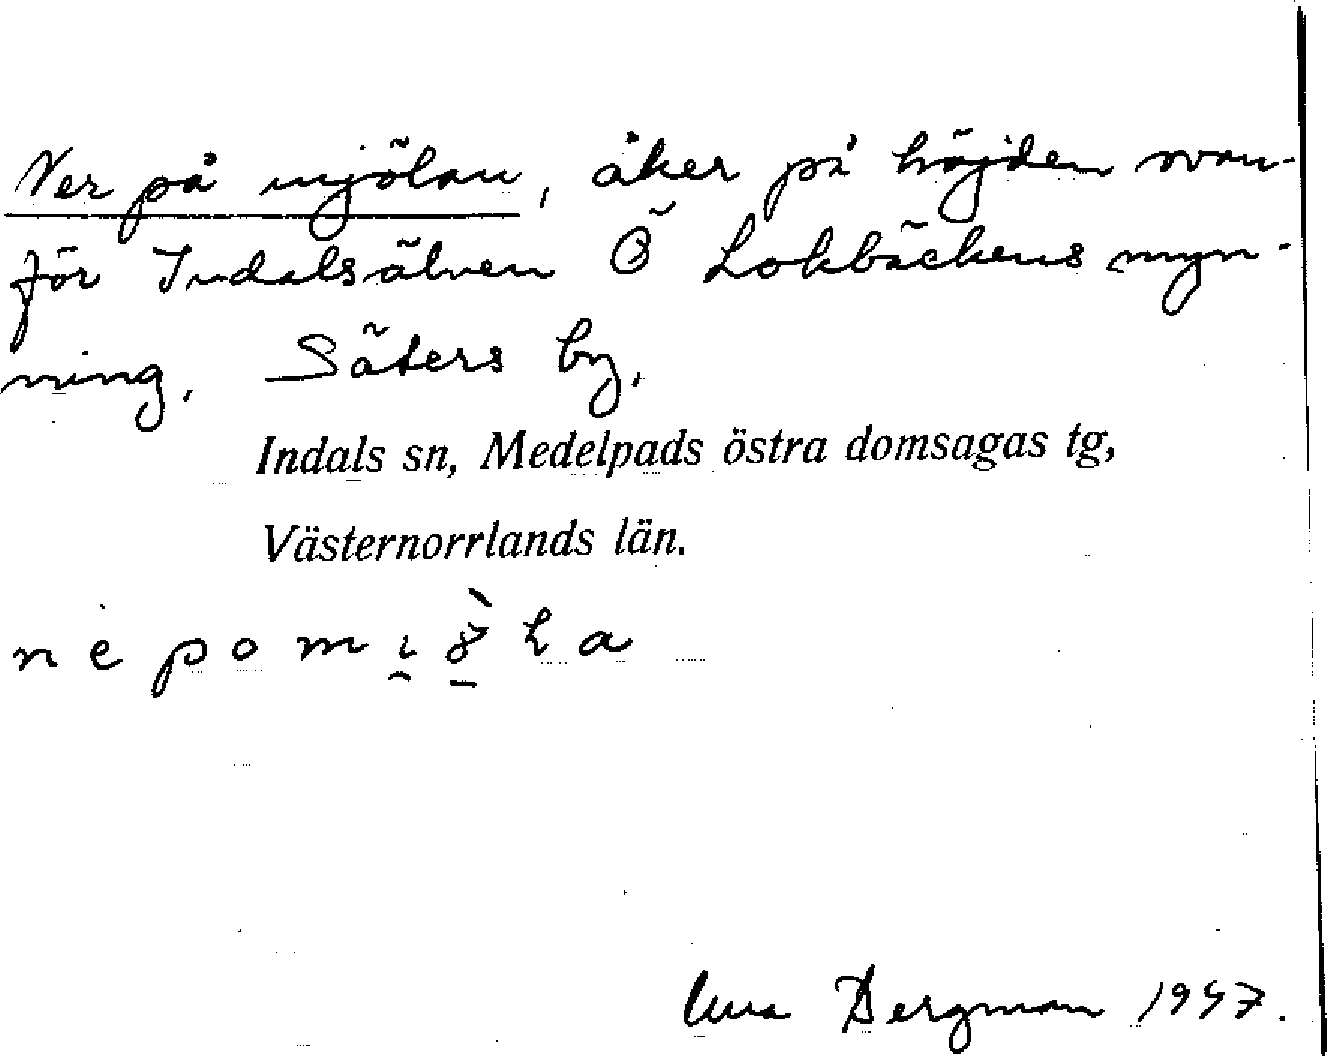 Ner på mjölan, åker på höjden ovan-
för Indalsälven Ö Lokbäckens myn-
ning. Säters by.
Indals sn, Medelpads östra domsagas tg,
Västernorrlands län.
Bergman 1947.